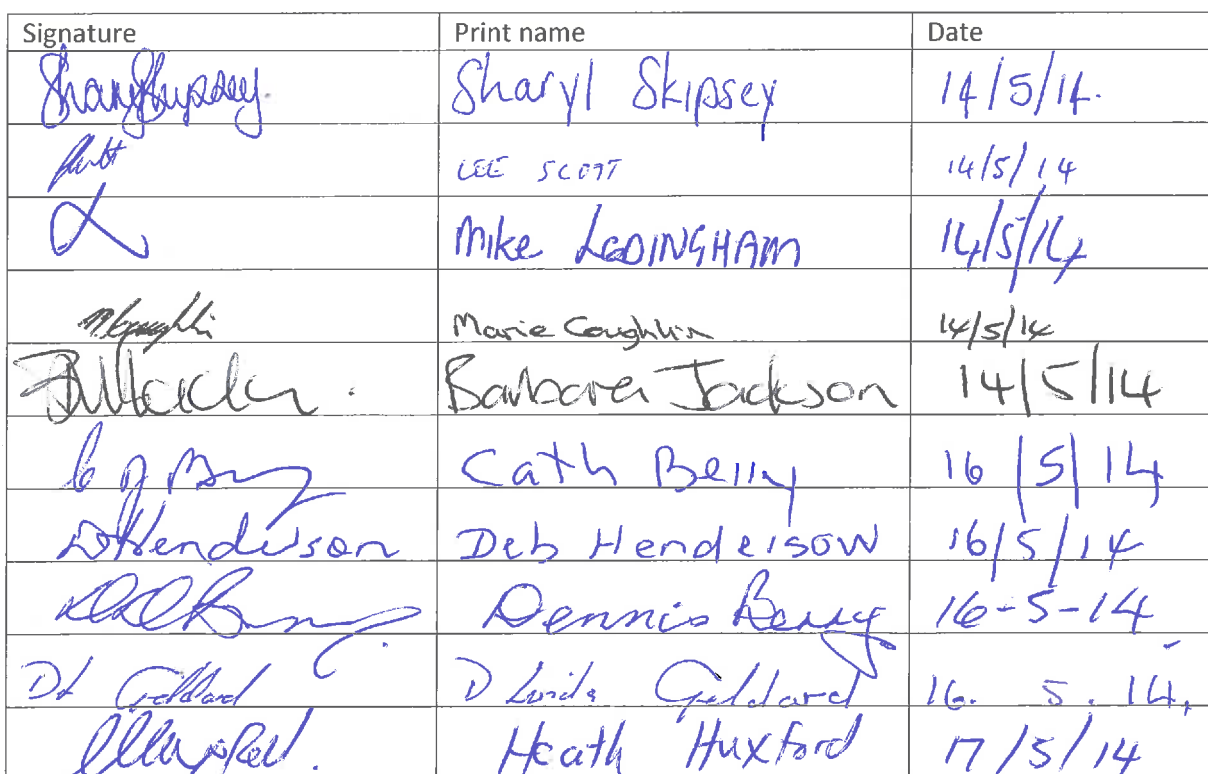 Signature Print name Date
Sharyl Skipsey 14/5/14.
LEE SCOTT 14/5/14
Mike LEDINGHAM 14/5/14
MCoughlin Marie Coughlin 14/5/14
Barbara Jackson 14/5/14
Cath Berry 16/5/14
DHenderson Deb Henderson 16/5/14
Dennis Berry 16-5-14
DL Goddard D Linda Goddard 16. 5. 14,
Heath Huxford 17/5/14